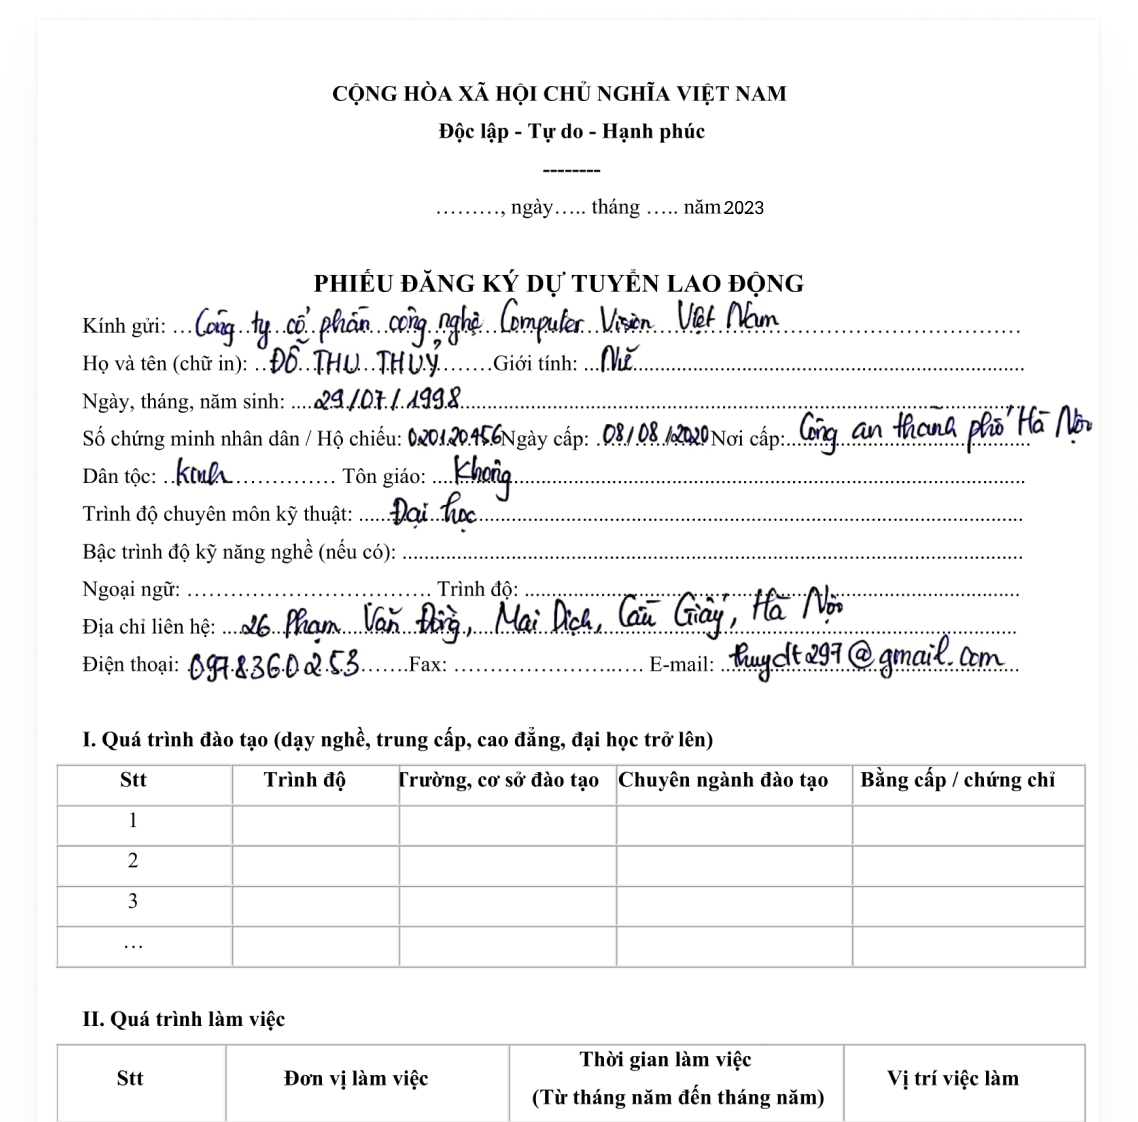 CỘNG HÒA XÃ HỘI CHỦ NGHĨA VIỆT NAM
Độc lập - Tự do - Hạnh phúc
--------
………, ngày….. tháng ….. năm 2023
PHIẾU ĐĂNG KÝ DỰ TUYỂN LAO ĐỘNG
Kính gửi: Công ty cổ phần công nghệ Computer Vision Việt Nam
Họ và tên (chữ in): ĐỖ THU THUỶ Giới tính: Nữ
Ngày, tháng, năm sinh: 29/07/1998
Số chứng minh nhân dân / Hộ chiếu: 020120456 Ngày cấp: 08/08/2020 Nơi cấp: Công an thành phố Hà Nội
Dân tộc: Kinh Tôn giáo: Không
Trình độ chuyên môn kỹ thuật: Đại học
Bậc trình độ kỹ năng nghề (nếu có):
Ngoại ngữ: Trình độ:
Địa chỉ liên hệ: 26 Phạm Văn Đồng, Mai Dịch, Cầu Giấy, Hà Nội
Điện thoại: 0978360253 Fax: E-mail: thuydt297@gmail.com
I. Quá trình đào tạo (dạy nghề, trung cấp, cao đẳng, đại học trở lên)
Stt Trình độ Trường, cơ sở đào tạo Chuyên ngành đào tạo Bằng cấp / chứng chỉ
1
2
3
…
II. Quá trình làm việc
Stt Đơn vị làm việc Thời gian làm việc Vị trí việc làm
(Từ tháng năm đến tháng năm)